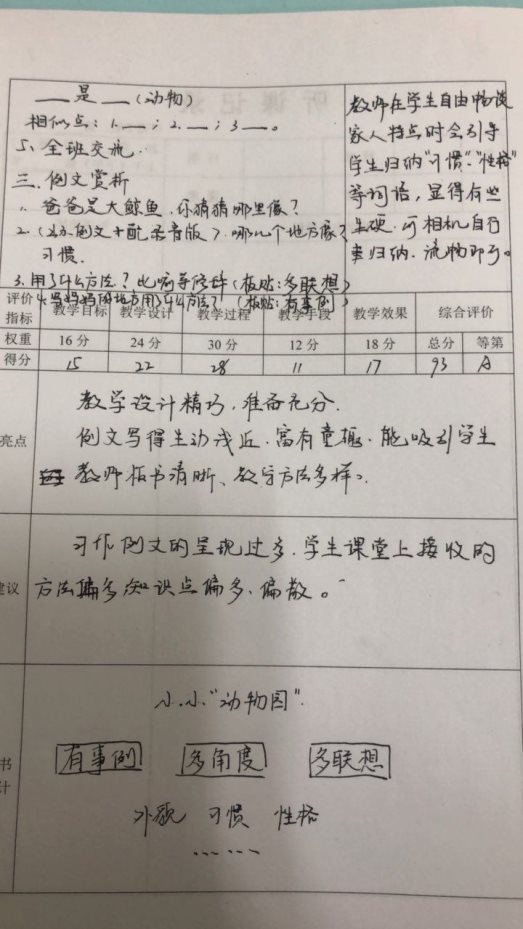 __是__(动物)
相似点：1.__；2.__；3__。
5、全班交流.
三、例文赏析
1、爸爸是大鲸鱼，你猜猜哪里像？
2.(出示例文+配录音版)，哪几个地方像？
习惯.
3.用了什么方法？比喻等修辞(板贴：多联想)
4.写妈妈的地方用了什么方法？(板贴：有事例)
教师在学生自由畅谈
家人特点时会引导
学生归纳“习惯”、“性格”
等词语，显得有些
生硬.可相机自行
归纳.流畅即可。
评价指标 教学目标 教学设计 教学过程 教学手段 教学效果 综合评价
权重 16分 24分 30分 12分 18分 总分 等第
得分 15 22 28 11 17 93 A
亮点
教学设计精巧，准备充分.
例文写得生动浅近、富有童趣.能吸引学生
教师板书清晰、教学方法多样。
建议
习作例文的呈现过多，学生课堂上接收的
方法偏多知识点偏多、偏散。
书
计
小小“动物园”
有事例 多角度 多联想
外貌 习惯 性格
……